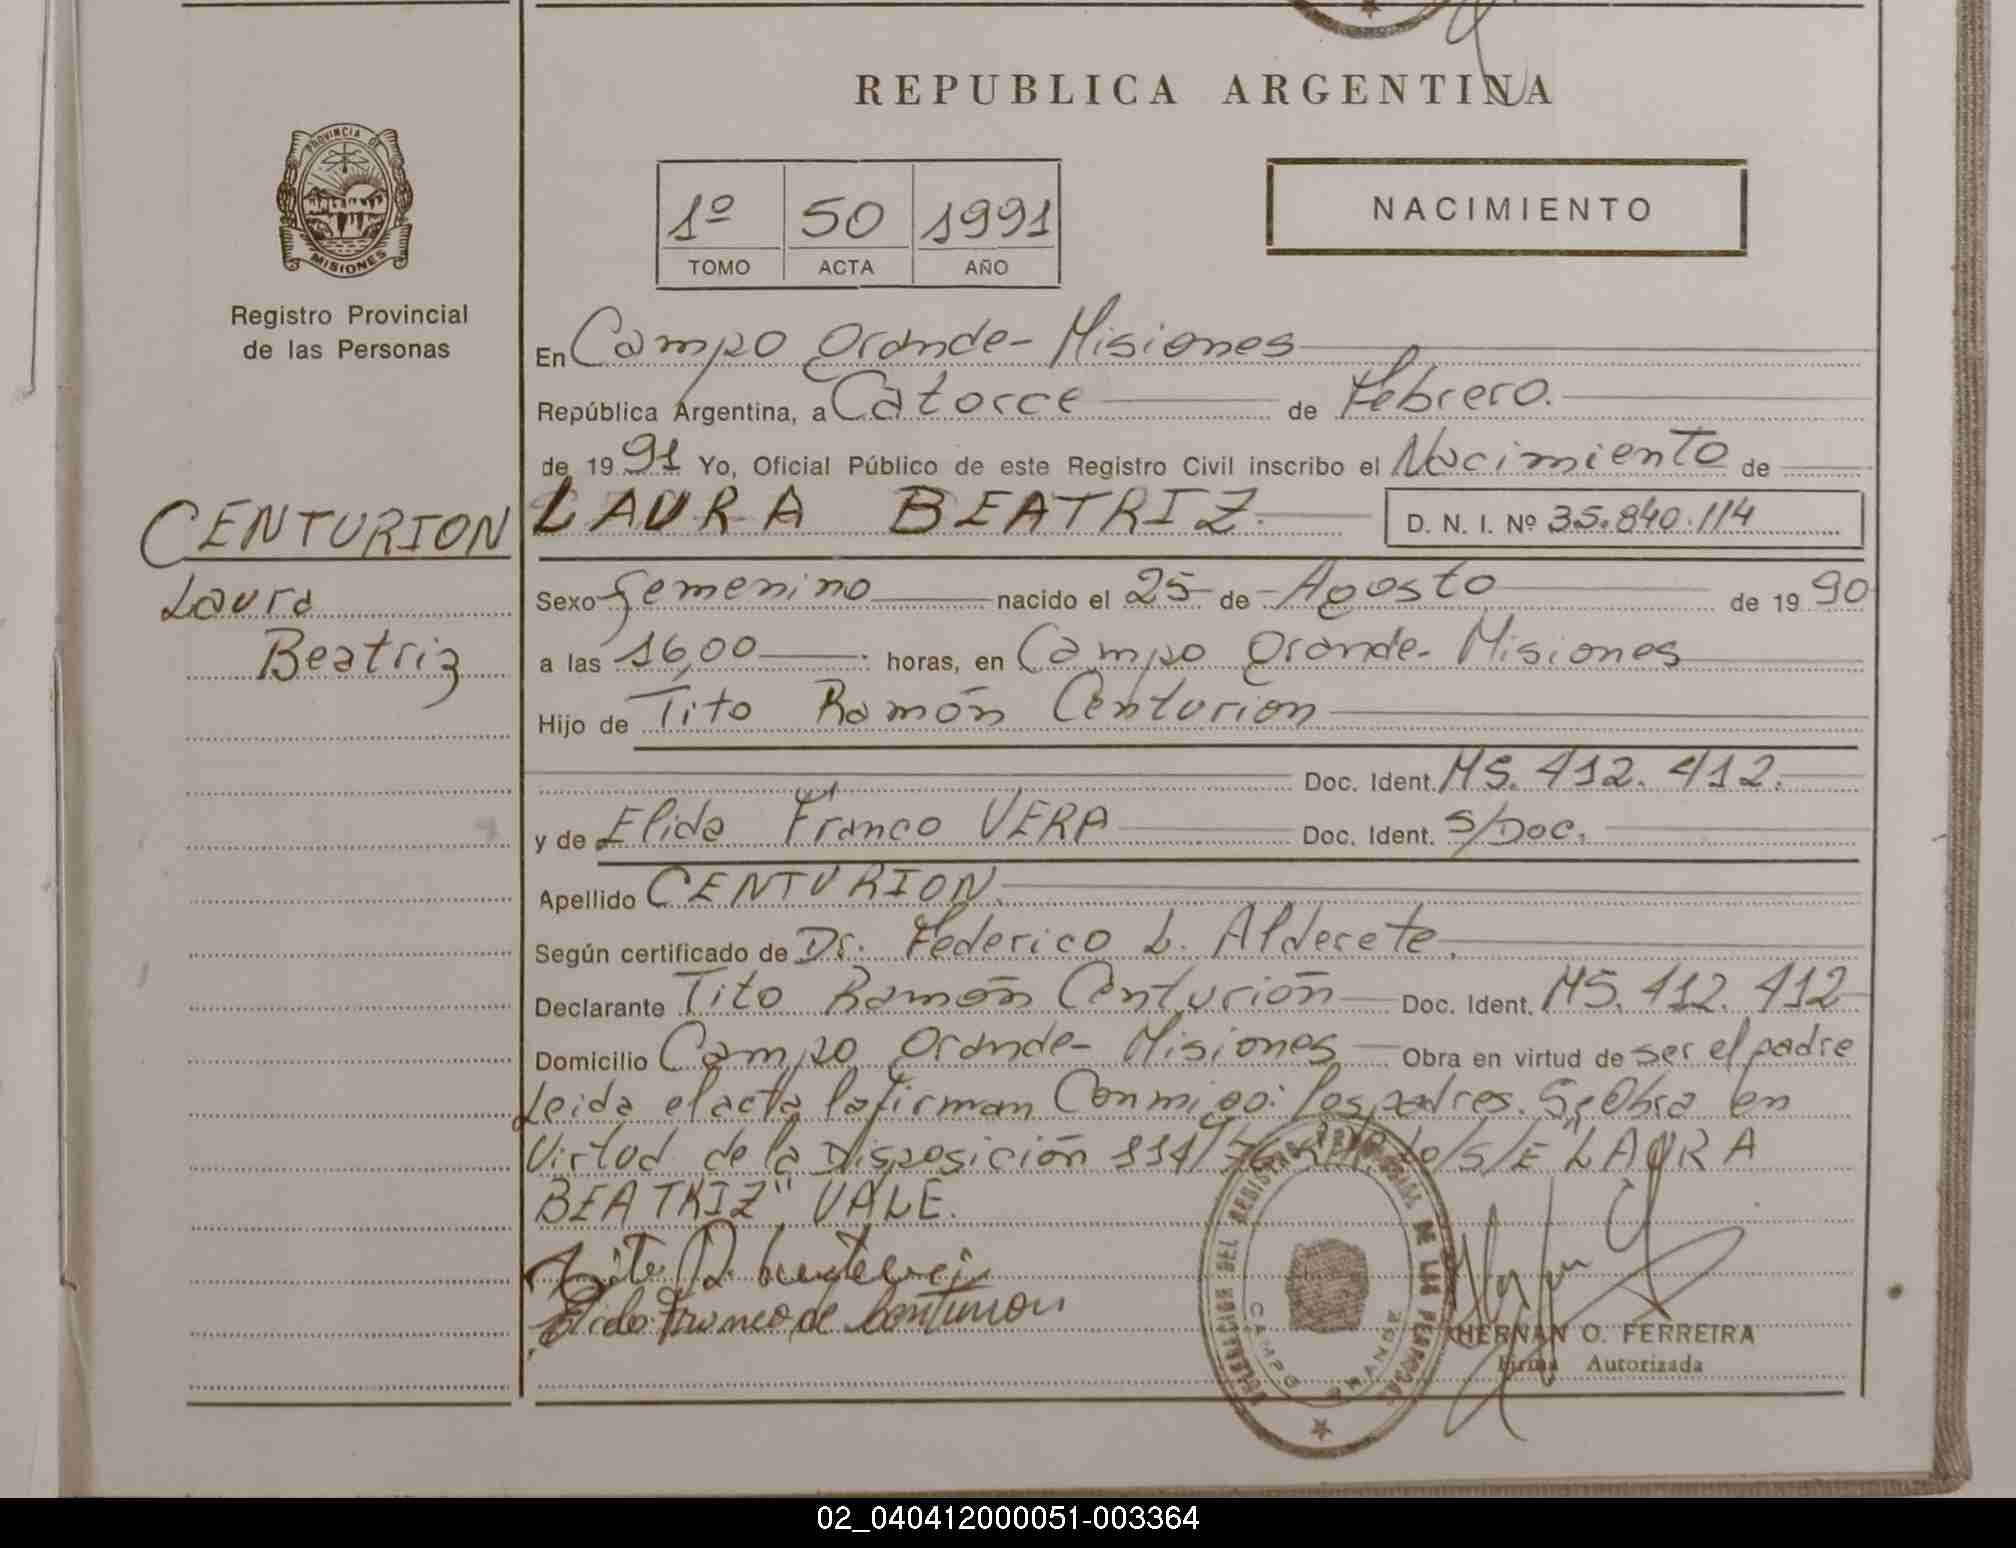 REPUBLICA ARGENTINA
PROVINCIA DE
MISIONES
Registro Provincial
de las Personas
1º 50 1991
TOMO ACTA AÑO
NACIMIENTO
En Campo Grande - Misiones
República Argentina, a Catorce de Febrero.
de 19 91 Yo, Oficial Público de este Registro Civil inscribo el Nacimiento de
CENTURION
Laura
Beatriz
LAURA BEATRIZ. D. N. I. Nº 35.840.114
Sexo Femenino nacido el 25 de Agosto de 19 90
a las 16,00 horas, en Campo Grande - Misiones
Hijo de Tito Ramón Centurion
Doc. Ident. M5.412.412.
y de Elida Franco VERA Doc. Ident. S/Doc.
Apellido CENTURION.
Según certificado de Dr. Federico L. Alderete.
Declarante Tito Ramón Centurión Doc. Ident. M5.412.412
Domicilio Campo Grande - Misiones Obra en virtud de ser el padre
Leida el acta la firman Conmigo: los padres. Se Obra en
Virtud de la Disposición 114/ S/E "LAURA
BEATRIZ" VALE.
Tito R.
Elida Franco de Centurion
DELEGACION DEL REGISTRO DE LAS PERSONAS
CAMPO GRANDE
HERNAN O. FERREIRA
Firma Autorizada
02_040412000051-003364